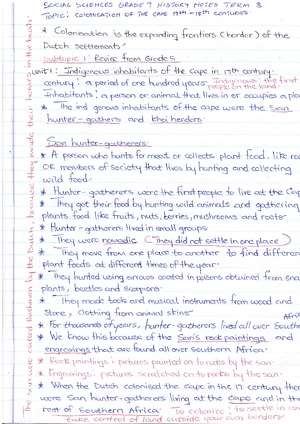 SOCIAL SCIENCES GRADE 7 HISTORY NOTES TERM 3
TOPIC: COLONISATION OF THE CAPE 17TH - 18TH CENTURIES
* Colonisation is the expanding frontiers (border) of the
Dutch settlements
Subtopic 1: Revise from Grade 5
Unit 1: Indigenous inhabitants of the Cape in 17th century
century: a period of one hundred years Indigenous: the first
people on the land
Inhabitants: a person or animal that lives in or occupies a pla
* The indigenous inhabitants of the Cape were the San
hunter-gathers and khoi herders.
San hunter-gatherers:
* A person who hunts for meat or collects plant food. like
OR members of society that lives by hunting and collecting
wild food.
* Hunter-gatherers were the first people to live at the Cape
* They got their food by hunting wild animals and gathering
plants food like fruits, nuts, berries, mushrooms and roots
* Hunter-gatherers lived in small groups
* They were nomadic (They did not settle in one place)
* They move from one place to another to find different
plant foods at different times of the year.
* They hunted using arrows coated in poisons obtained from
plants, beetles and scorpions.
* They made tools and musical instruments from wood and
stone, clothing from animal skins
* For thousands of years, hunter-gatherers lived all over Southe
Afri
* We know this because of the San's rock paintings and
engravings that are found all over Southern Africa.
* Rock paintings: pictures painted on to rocks by the San.
* Engravings: pictures scratched on to rocks by the San.
* When the Dutch colonised the Cape in the 17 century ther
were San hunter-gatherers living at the Cape and in the
rest of Southern Africa. To colonise: to settle in an
take control of land outside your own borders
because they made their homes in the bush.